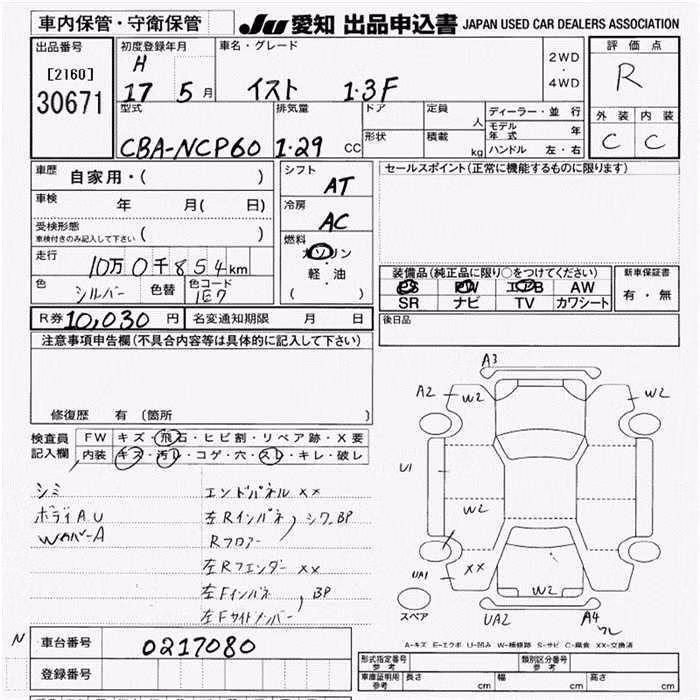 車内保管・守衛保管
JU 愛知 出品申込書 JAPAN USED CAR DEALERS ASSOCIATION
出品番号
[2160]
30671
初度登録年月
H
17 5 月
車名・グレード
イスト 1.3F
2WD
・
4WD
評価点
R
外装 内装
C C
型式
CBA-NCP60
排気量
1.29 CC
ドア
形状
定員
人
積載
kg
ディーラー・並行
モデル年式 年
ハンドル 左・右
車歴
自家用・( )
車検
年 月( 日)
受検形態
車検付きのみ記入して下さい ( )
走行
10万0千854km
色
シルバー
色替
色コード
1E7
シフト
AT
冷房
AC
燃料
ガソリン
・
軽油
( )
セールスポイント(正常に機能するものに限ります)
装備品(純正品に限り○をつけてください)
PS PW エアB AW
SR ナビ TV カワシート
新車保証書
有・無
R券 10,030 円 名変通知期限 月 日
後日品
注意事項申告欄(不具合内容等は具体的に記入して下さい)
修復歴 有 (箇所 )
検査員
記入欄
FW キズ・飛石・ヒビ割・リペア跡・X要
内装 キズ・汚レ・コゲ・穴・スレ・キレ・破レ
シミ
ボディA.U
Wカバー A
エンドパネル XX
左Rインパネ,シワ.BP
Rフロアー
左Rフェンダー XX
左Fインパネ
, BP
左Fサイドメンバー
A3
A2 W2
W2
U1
W2
UA1
XX
W2
スペア
UA2 A4
ワレ
A-キズ E-エクボ U-凹み W-補修跡 S-サビ C-腐食 XX-交換済
N 車台番号 0217080
登録番号
形式指定番号
参考
類別区分番号
参考
車庫証明用
参考
長さ cm 幅 cm 高さ cm